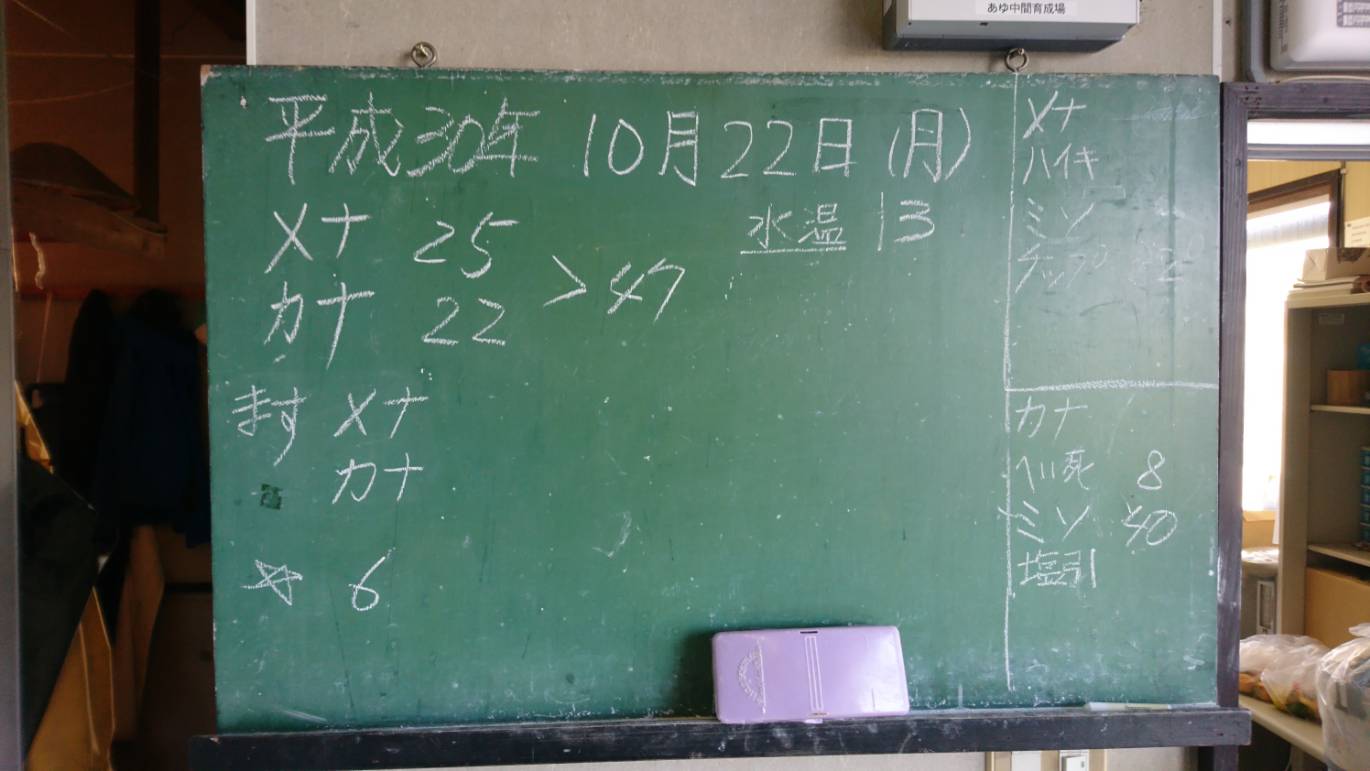 あゆ中間育成場
平成30年 10月22日(月)
水温 13
メナ 25
カナ 22
>47
ます メナ
カナ
☆ 6
メナ
ハイキ
ミソ
カナ
ヘい死 8
ミソ 40
塩引